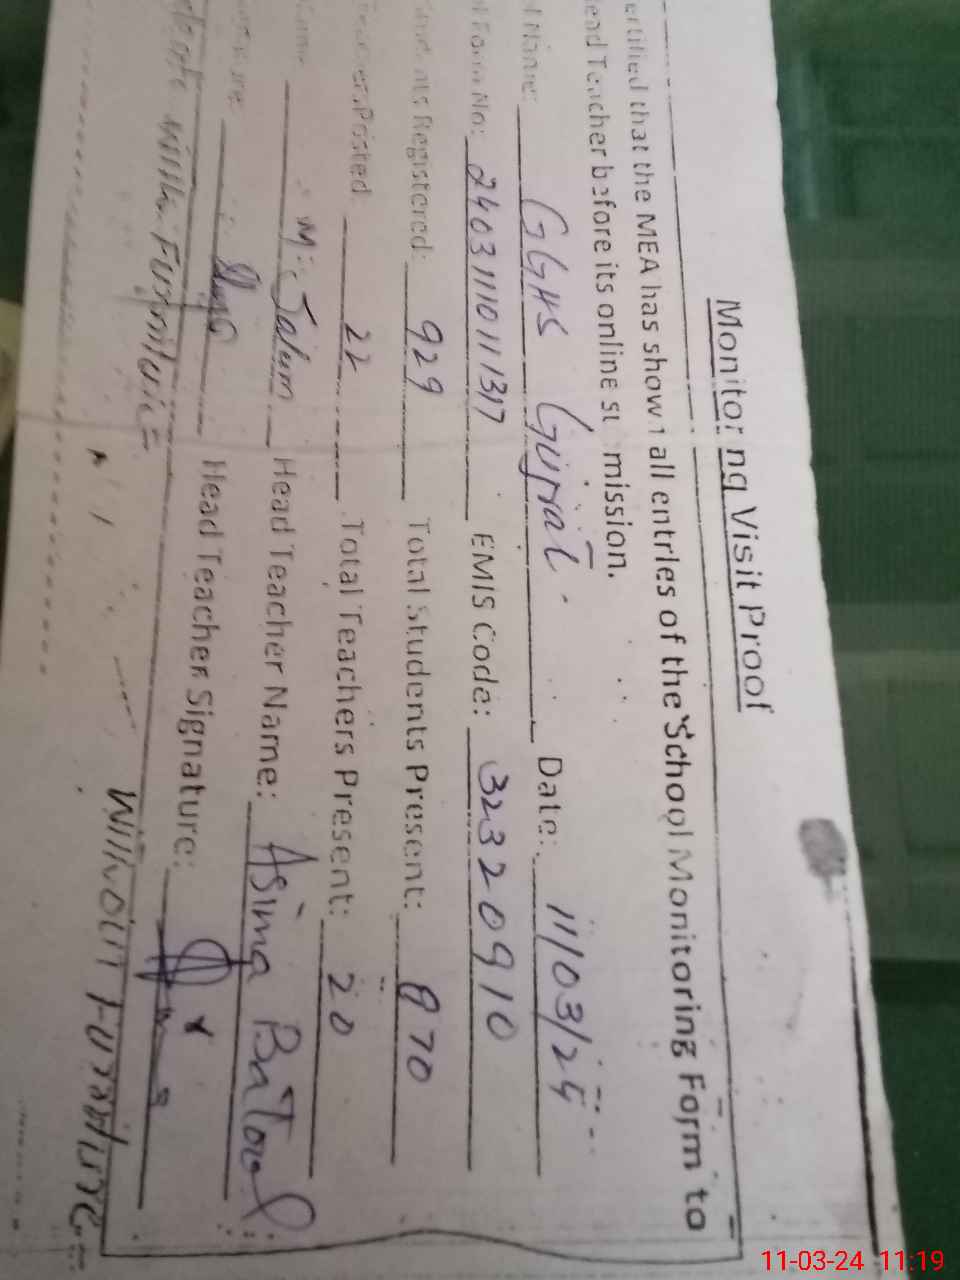 Monitoring Visit Proof
ertified that the MEA has shown all entries of the School Monitoring Form to
ead Teacher before its online su mission.
l Name: GGHS Gujrat Date: 11/03/24
l Form No: 2403111011317 EMIS Code: 32320910
Students Registered: 929 Total Students Present: 870
Teachers Posted: 22 Total Teachers Present: 20
Name: M. Salam Head Teacher Name: Asima Batool
Head Teacher Signature:
with Furniture =
Without Furniture =
11-03-24 11:19